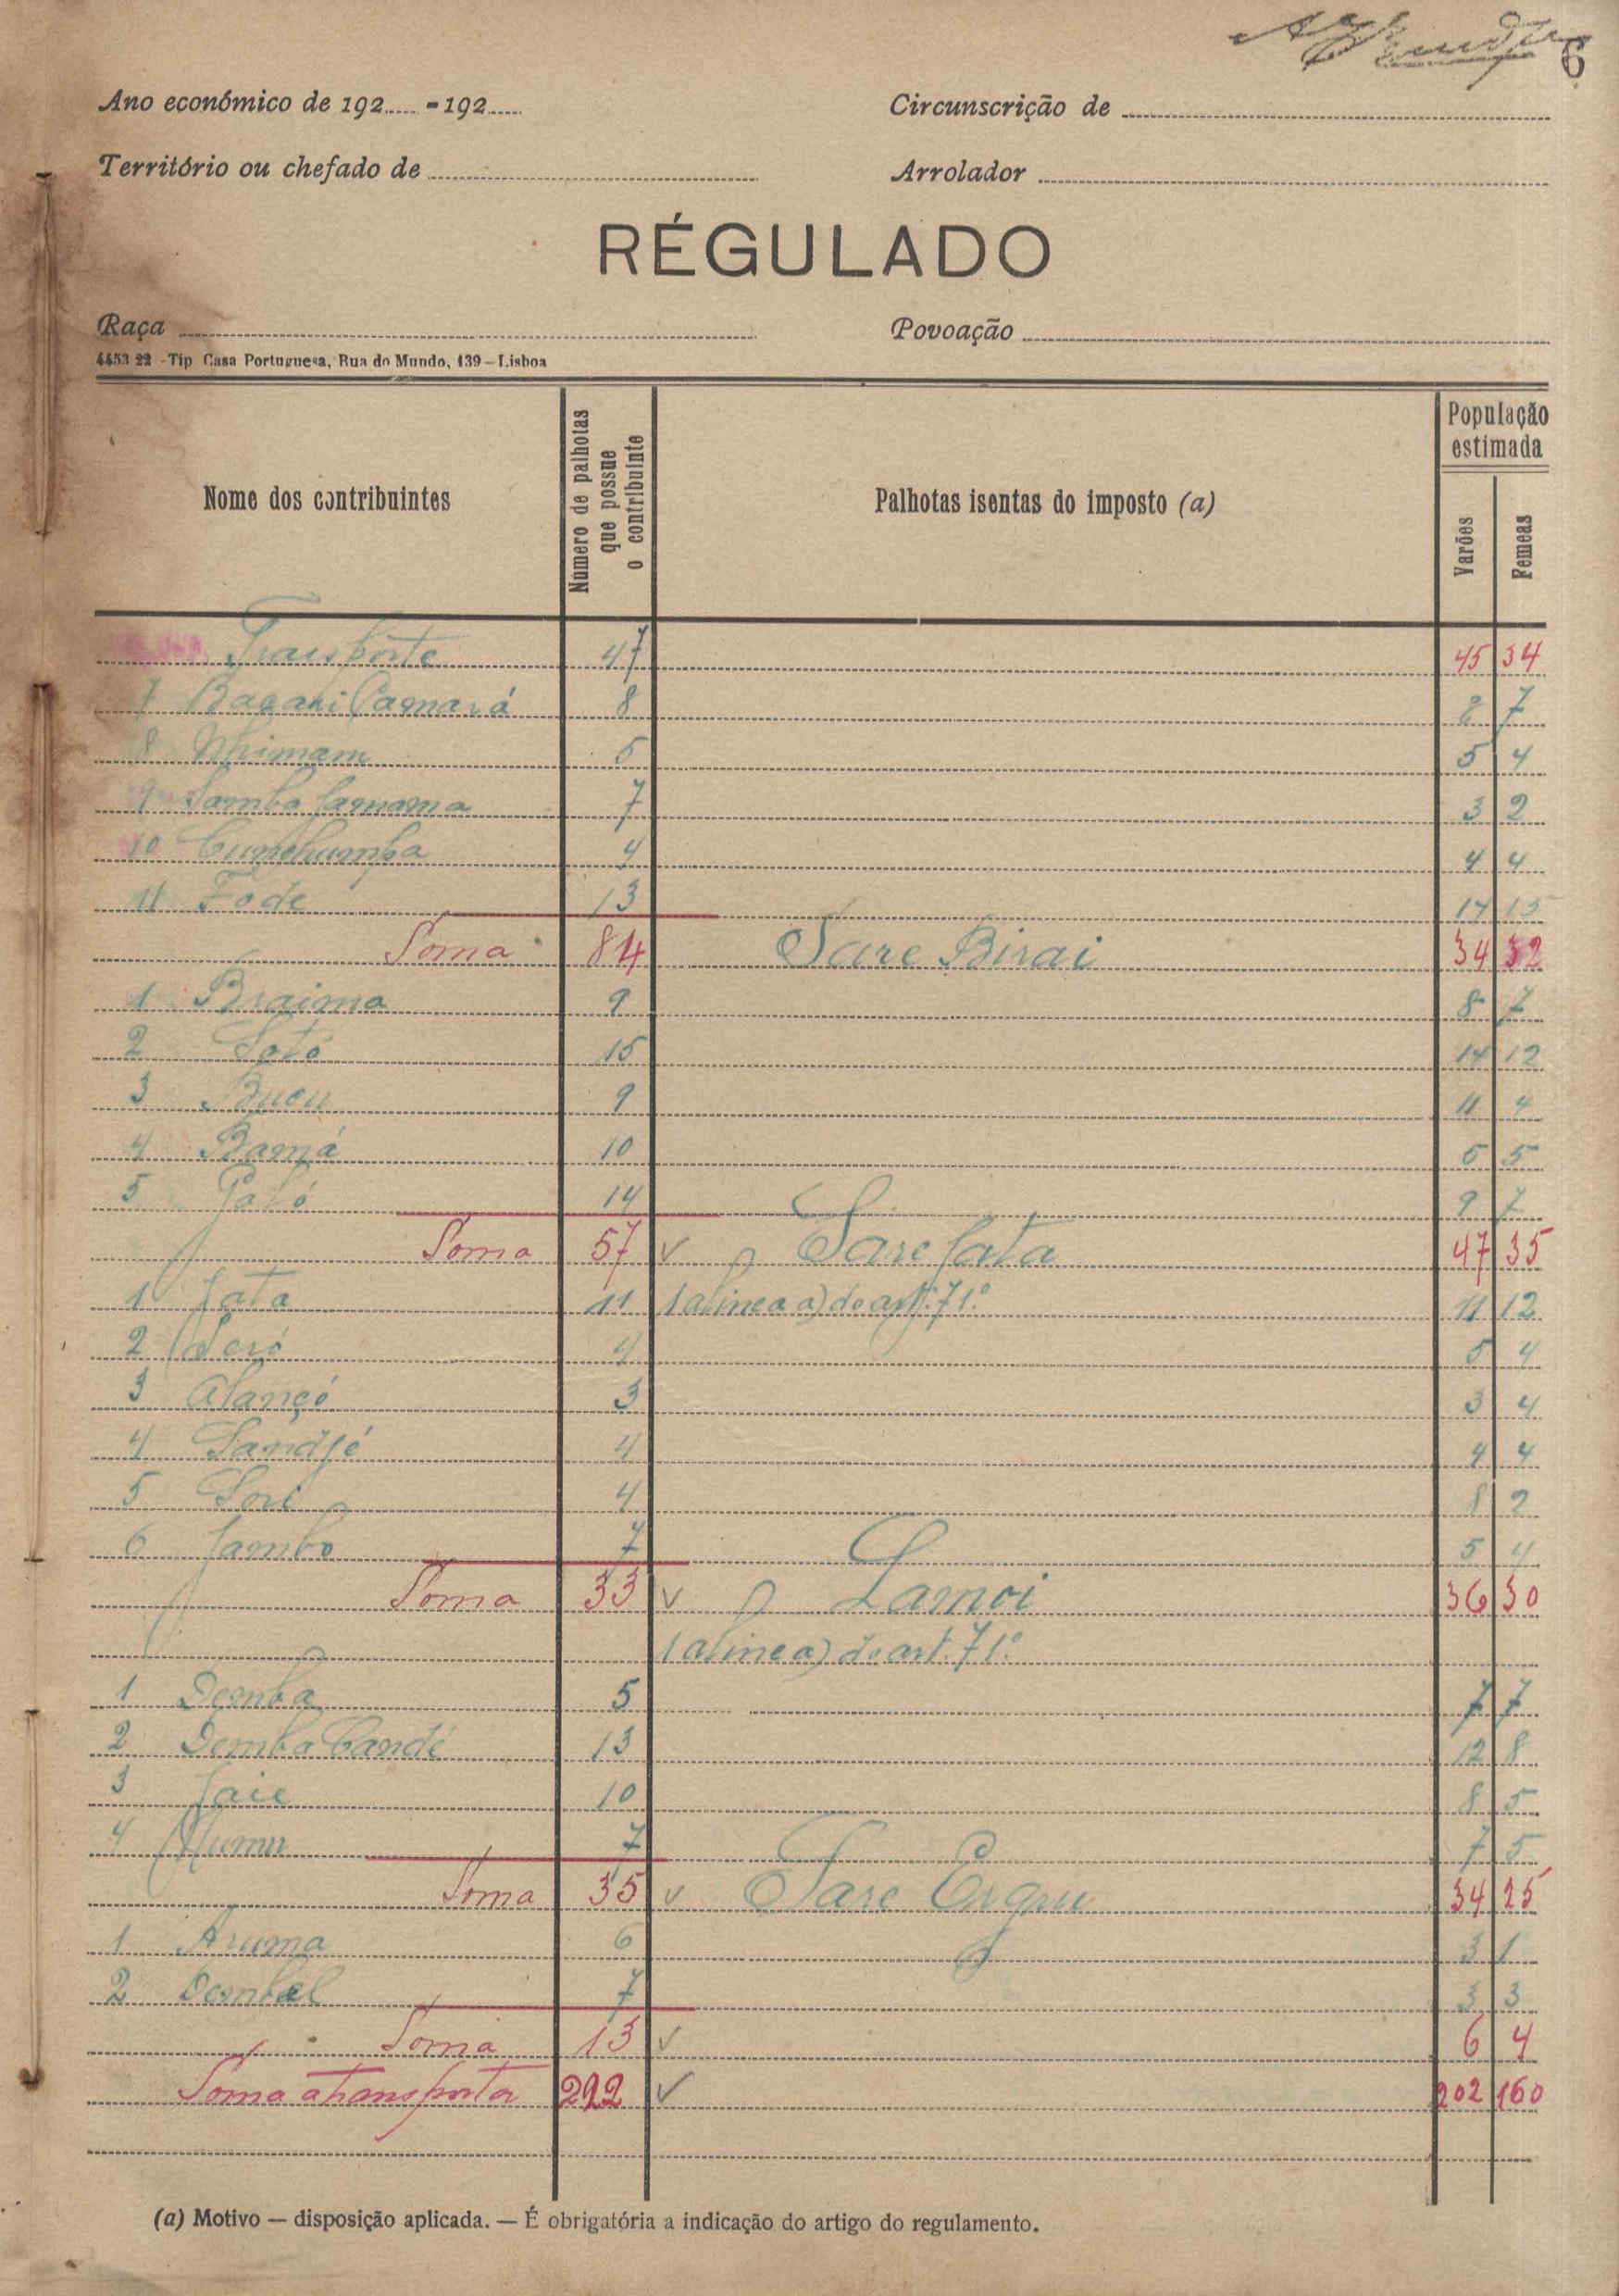 6
Ano económico de 192..... - 192..... Circunscrição de
Território ou chefado de Arrolador
RÉGULADO
Raça Povoação
4453 22 - Tip Casa Portuguesa, Rua do Mundo, 139 - Lisboa
Nome dos contribuintes Número de palhotas que possue o contribuinte Palhotas isentas do imposto (a) População estimada Varões Femeas
Transporte 47 45 34
7 Bagahi Camará 8 2 7
8 5 5 4
9 Samba 7 3 2
10 4 4 4
11 Fode 13 17 15
Soma 84 Sare Birai 34 32
1 Braima 9 8 7
2 15 14 12
3 Bucu 9 11 4
4 Bamá 10 5 5
5 14 9 7
Soma 57 v Sare Jata 47 35
1 Jata 11 (alinea a) do art. 71.º 11 12
2 Seró 4 5 4
3 Alançó 3 3 4
4 Sandjé 4 4 4
5 Sori 4 8 2
6 Jambo 7 5 4
Soma 33 v Lamoi 36 30
(alinea) do art. 71.º
1 Demba 5 7 7
2 Demba Candé 13 12 8
3 Jaie 10 8 5
4 7 7 5
Soma 35 v Sare 34 25
1 Aruma 6 3 1
2 Dembel 7 3 3
Soma 13 v 6 4
Soma a transportar 292 v 202 160
(a) Motivo — disposição aplicada. — É obrigatória a indicação do artigo do regulamento.